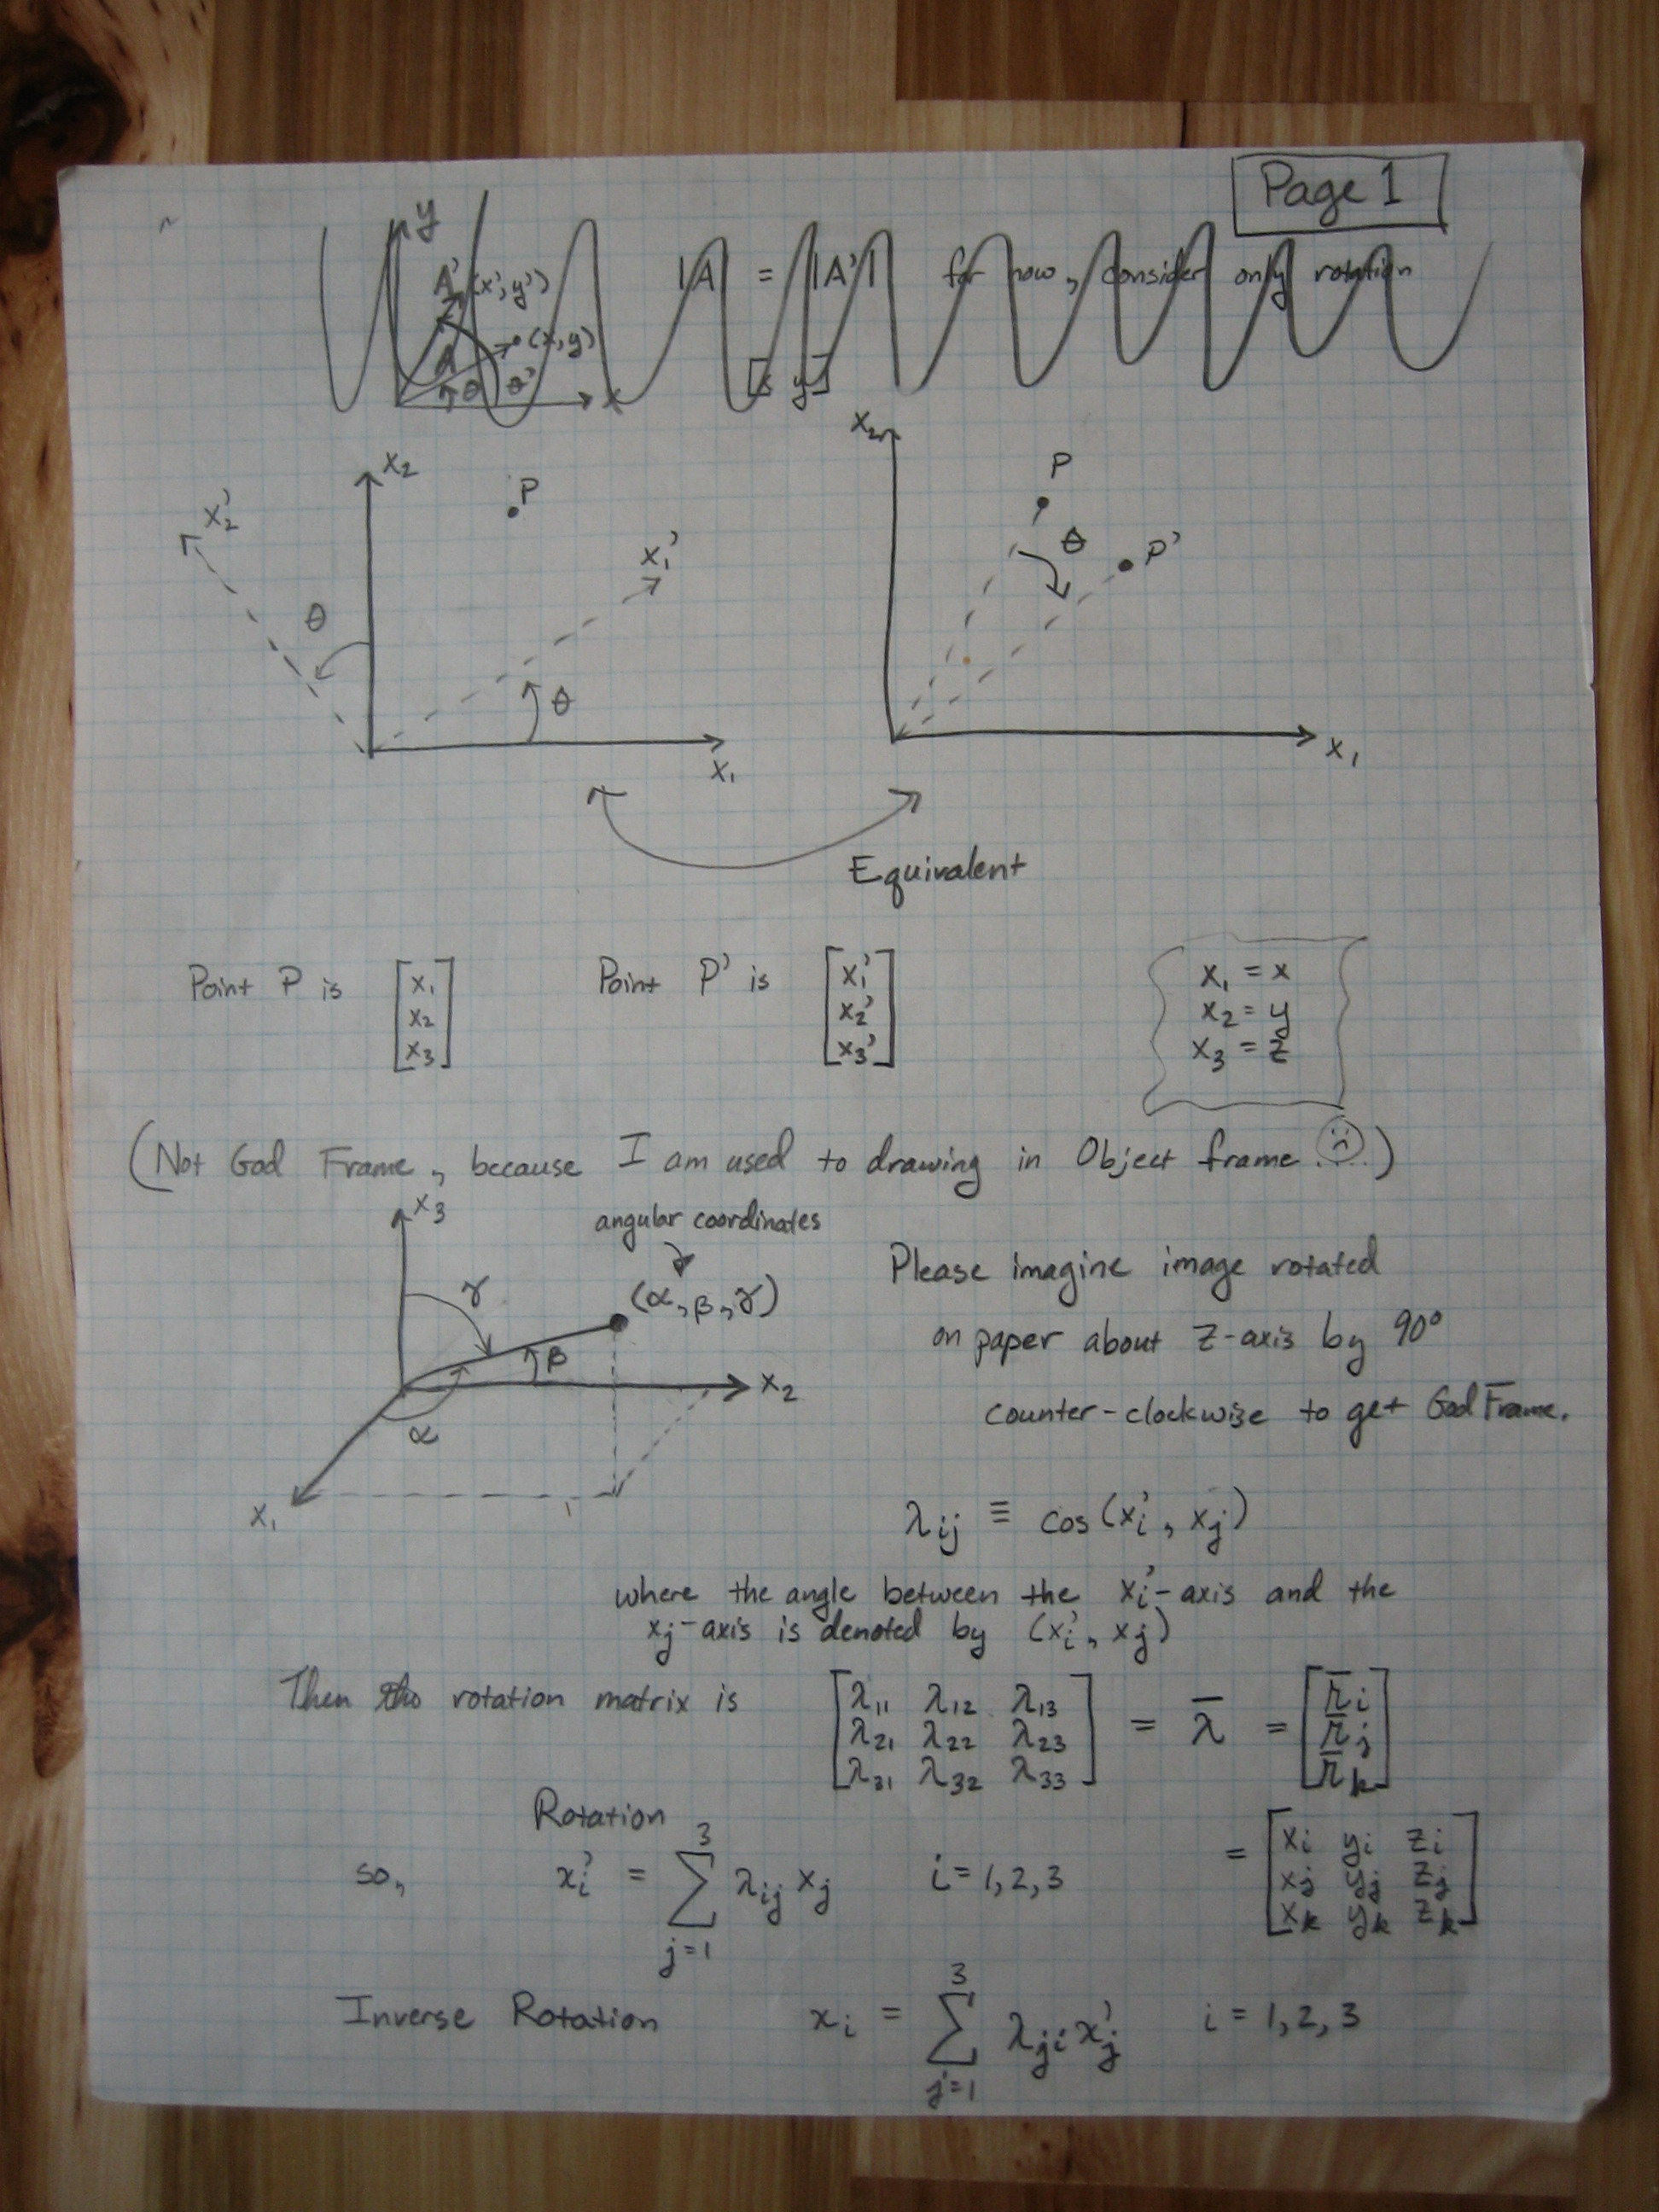 Page 1
y
A' (x', y')
|A| = |A'| for now, consider only rotation
A (x, y)
θ θ'
x
[x y]
x₂
x₂'
P
x₁'
θ
θ
x₁
x₂
P
θ
P'
x₁
Equivalent
Point P is [x₁ x₂ x₃]
Point P' is [x₁' x₂' x₃']
x₁ = x
x₂ = y
x₃ = z
(Not God Frame, because I am used to drawing in Object frame ☹...)
x₃
angular coordinates
γ
(α, β, γ)
β
x₂
α
x₁
Please imagine image rotated
on paper about z-axis by 90°
counter-clockwise to get God Frame.
λij ≡ cos(xi', xj)
where the angle between the xi'-axis and the
xj-axis is denoted by (xi', xj)
Then the rotation matrix is
[λ₁₁ λ₁₂ λ₁₃
λ₂₁ λ₂₂ λ₂₃
λ₃₁ λ₃₂ λ₃₃] = λ̄ = [r̄i
r̄j
r̄k]
= [xi yi zi
xj yj zj
xk yk zk]
Rotation
so, xi' = Σ λij xj i = 1, 2, 3
3
j=1
Inverse Rotation xi = Σ λji xj' i = 1, 2, 3
3
j=1